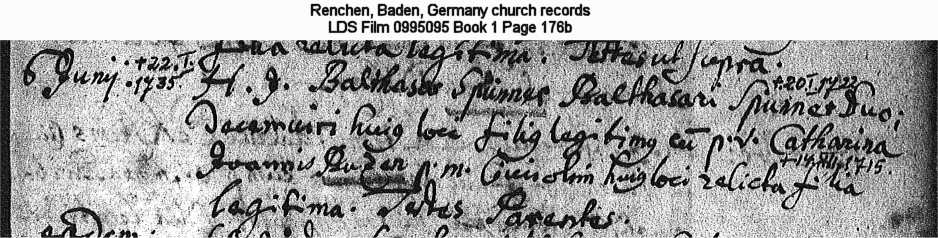 Renchen, Baden, Germany church records
LDS Film 0995095 Book 1 Page 176b
relicta legitima. Testes ut supra.
6 Junij +22.I.1735 H. J. Balthasar Spinner Balthasari Spinner Duo;
+20.I.1722
Decemviri huig loci filig legitimg cū p. v. Catharina
+14.     1715.
Joannis p. m. Civis olim huig loci relicta filia
legitima. Testes Parentes.